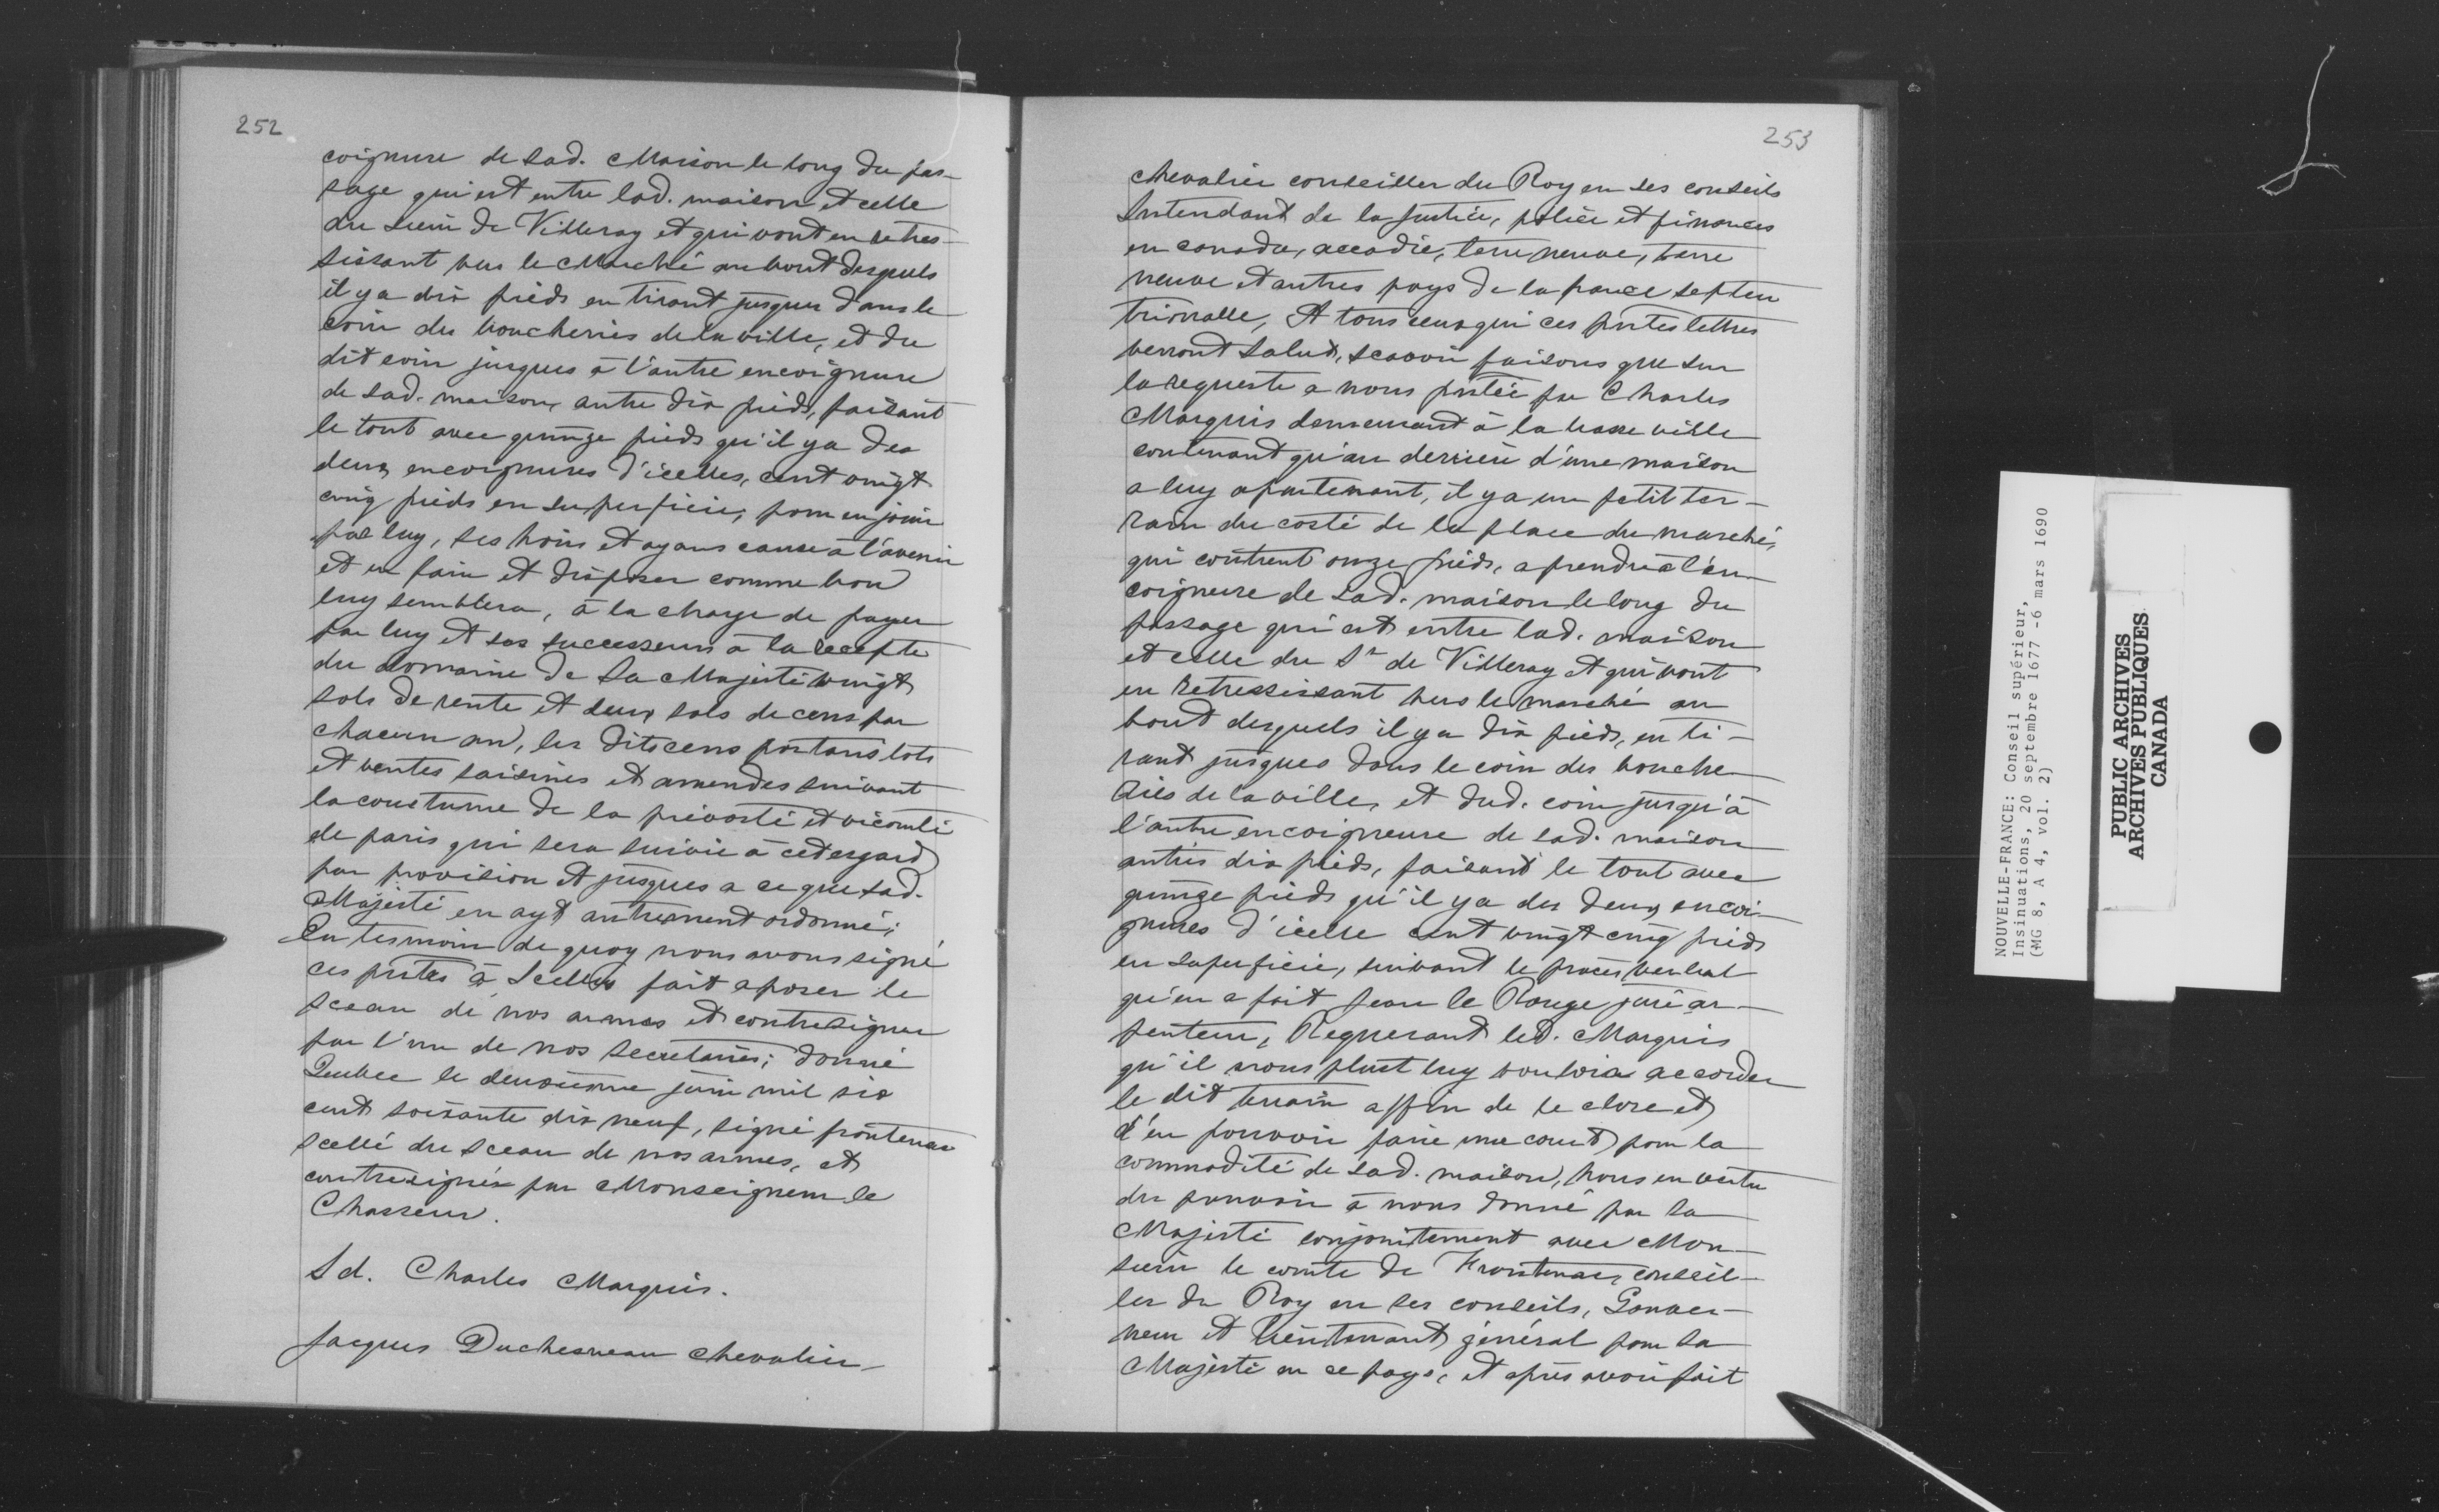 252
coignure de sad. Maison le long du pas-
sage qui est entre lad. maison et celle
du Sieur de Villeray et qui vont en retres-
sissant vers le Marché au bout desquels
il y a dix pieds en tirant jusques dans le
coin des boucheries de la ville, et du
dit coin jusques à l'autre encoignure
de sad. maison, autre dix pieds, faisant
le tout avec quinze pieds qu'il y a des
deux encoignures d'icelles, cent vingt
cinq pieds en superficie, pour en jouir
par luy, ses hoirs et ayans cause à l'avenir
et en faire et disposer comme bon
luy semblera, à la charge de payer
par luy et ses successeurs à la recepte
du domaine de Sa Majesté vingt
sols de rente et deux sols de cens par
chacun an, les dits cens portans lots
et ventes saisines et amendes suivant
la coustume de la prévosté et vicomté
de paris qui sera suivie à cet esgard
par provision et jusques a ce que sad.
Majesté en ayt autrement ordonné;
En tesmoin de quoy nous avons signé
ces pntes à Icelles fait aposer le
sceau de nos armes et contresigner
par l'un de nos secretaires; donné
Quebec le deuxiesme juin mil six
cent soixante dix neuf, signé frontenac
scellé du sceau de nos armes, et
contresignés par Monseigneur le
Chasseur.
Sd. Charles Marquis.
Jacques Duchesneau chevalier
253
chevalier conseiller du Roy en ses conseils
Intendant de la Justice, police et finances
en canada, accadie, terre neuve, terre
neuve et autres pays de la france septen
trionalle, A tous ceux qui ces pntes lettres
verront salut, scavoir faisons que sur
la requeste a nous pntée par Charles
Marquis demeurant à la basse ville
contenant qu'au derrière d'une maison
a luy apartenant, il y a un petit ter-
rain du costé de la place du marché,
qui contient onze pieds, a prendre à l'en-
coigneure de sad. maison le long du
passage qui est entre lad. maison
et celle du Sr de Villeray et qui vont
en retressissant vers le marché au
bout desquels il y a dix pieds, en ti-
rant jusques dans le coin des bouche
ries de la ville, et dud. coin jusqu'à
l'autre encoigneure de sad. maison
autres dix pieds, faisant le tout avec
quinze pieds qu'il y a des deux encoi-
gnures d'icelle cent vingt cinq pieds
en superficie, suivant le proces verbal
qu'en a fait Jean le Rouge juré ar-
penteur, Requerant led. Marquis
qu'il nous plust luy vouloir accorder
le dit terrain affin de le clore et
d'en pouvoir faire une court pour la
commodité de sad. maison, nous en vertu
du pouvoir à nous donné par Sa
Majesté conjointement avec Mon-
sieur le comte de Frontenac, conseil-
ler du Roy en ses conseils, Gouver-
neur et lieutenant général pour Sa
Majesté en ce pays, et après avoir fait
NOUVELLE-FRANCE: Conseil supérieur,
Insinuations, 20 septembre 1677 -6 mars 1690
(MG 8, A 4, vol. 2)
PUBLIC ARCHIVES
ARCHIVES PUBLIQUES
CANADA